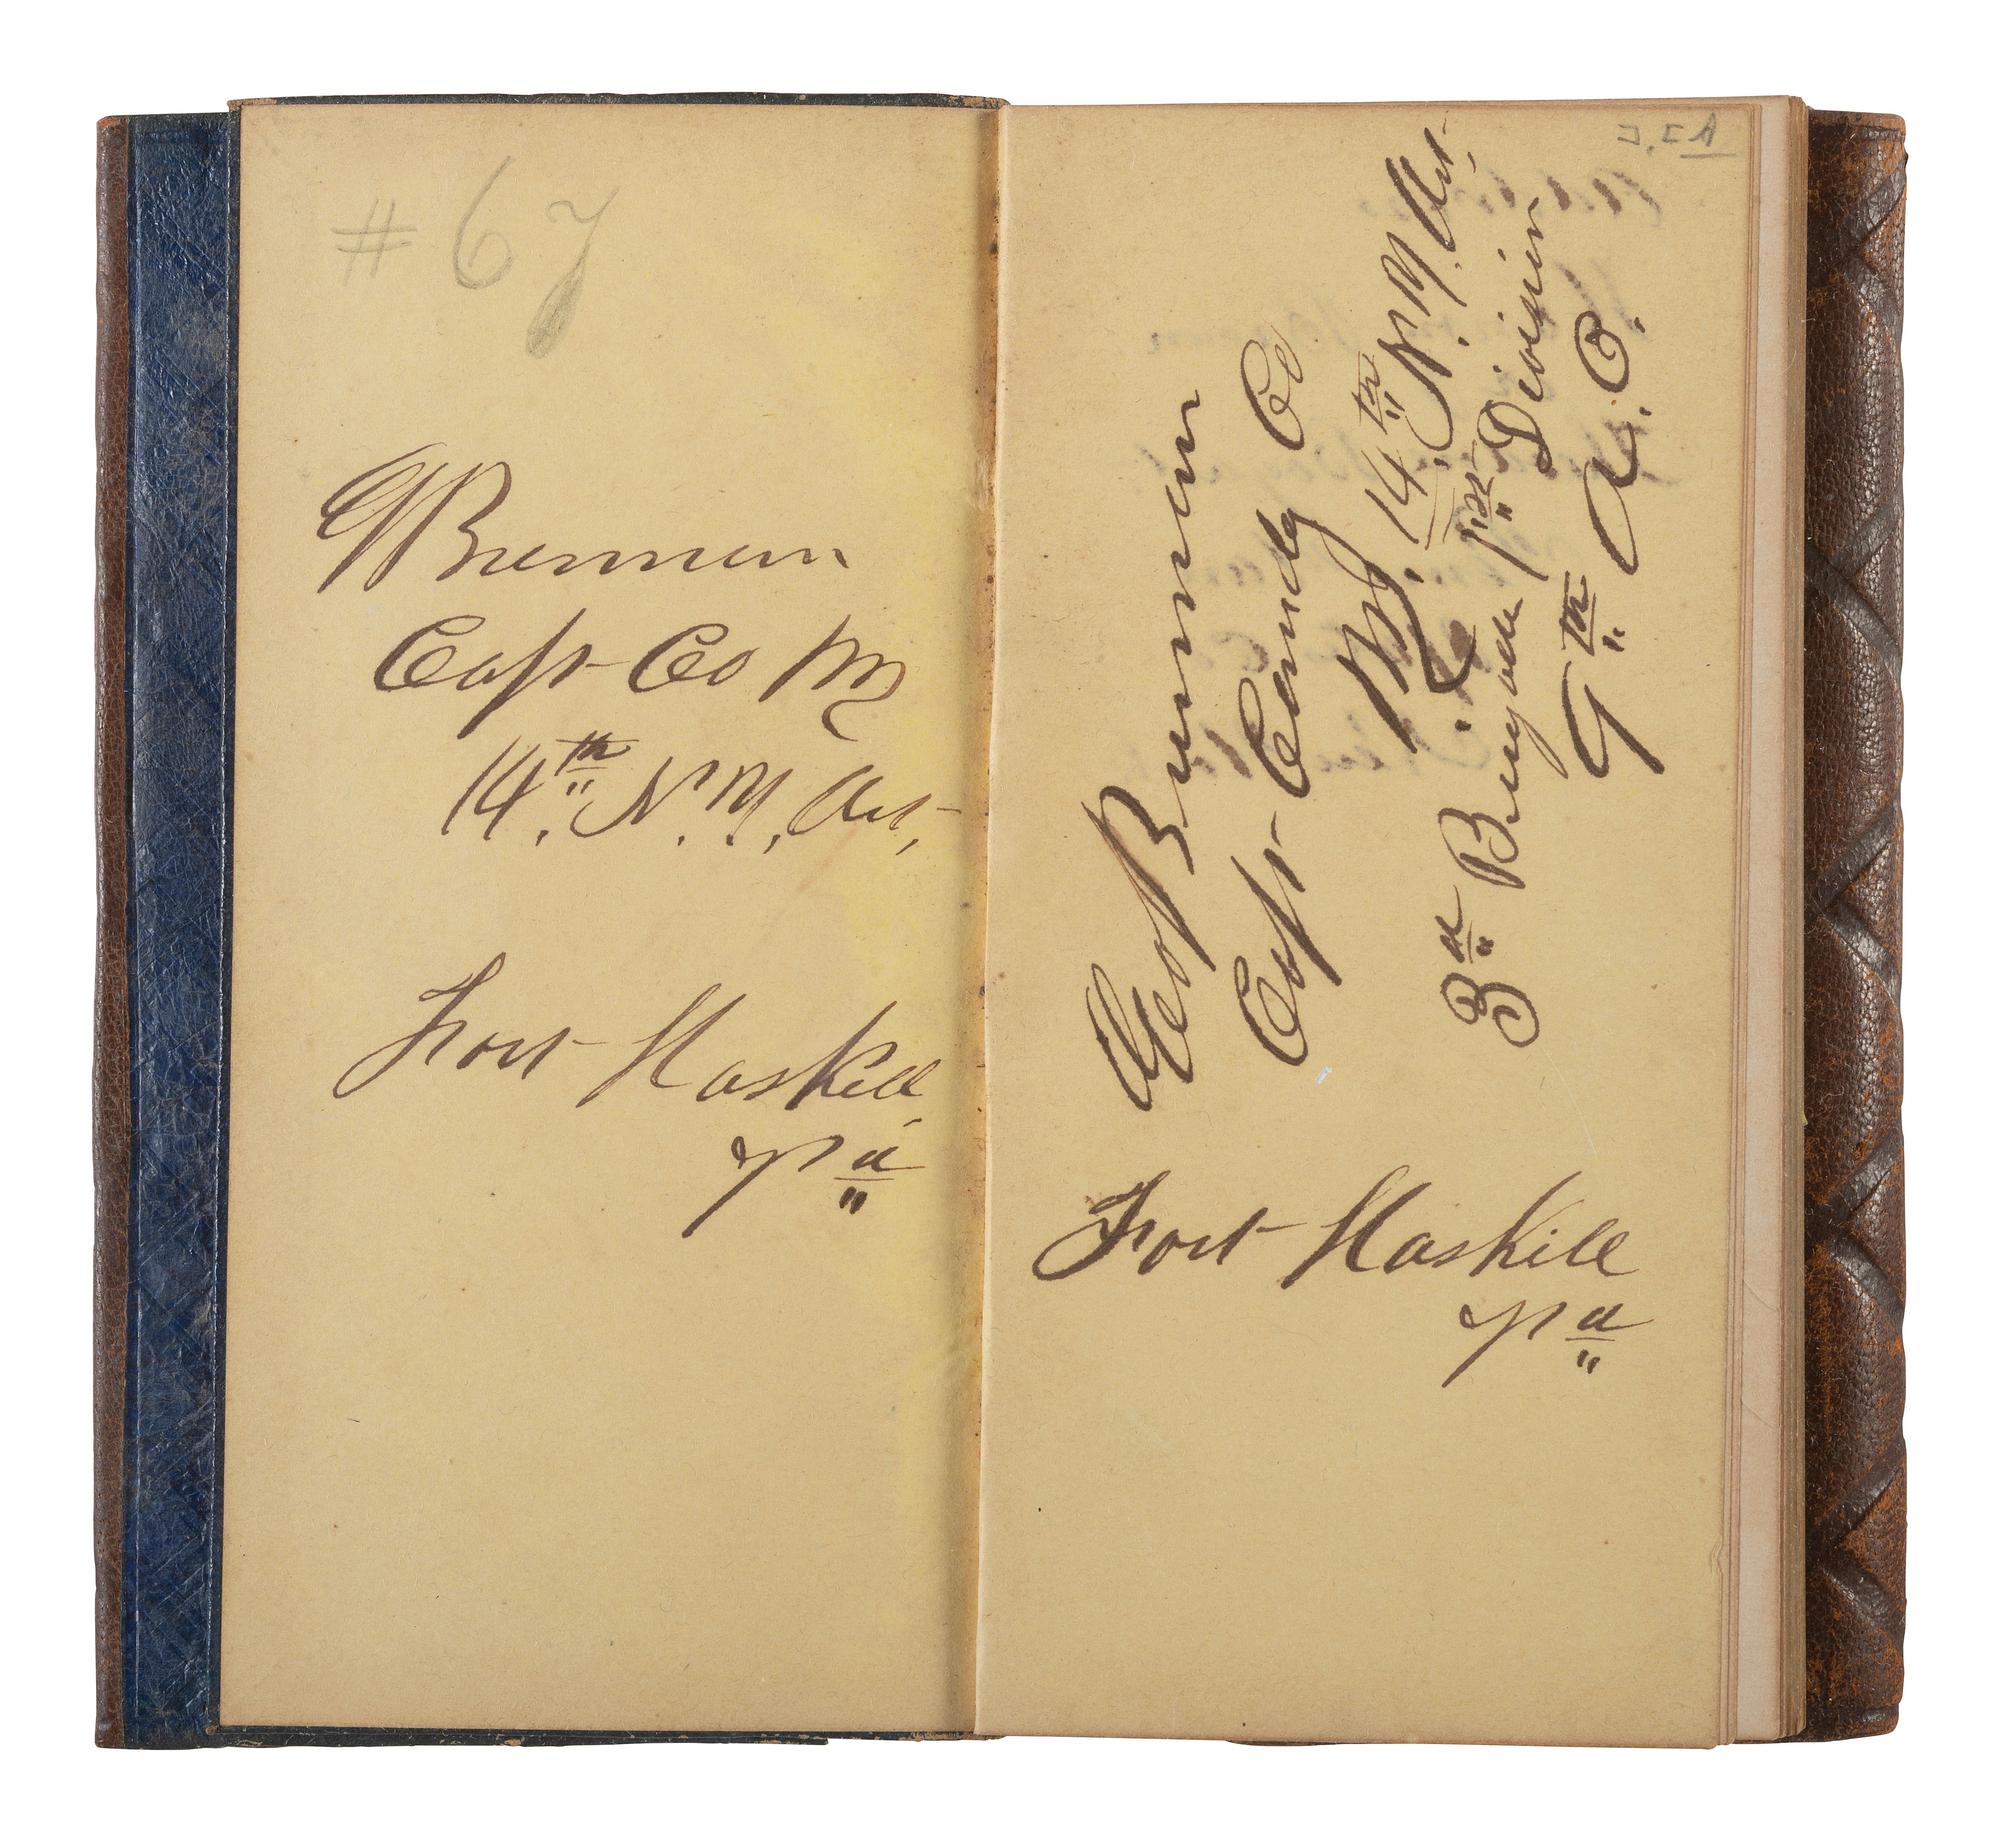 # 67
G Brennan
Capt Co M
14.th N.Y. Art,
Fort Haskell,
Va
Geo Brennan
Capt Comdg Co
M. 14.th N.Y. Art.
3d Brigade 1st Division
9th A. C.
Fort Haskell
Va